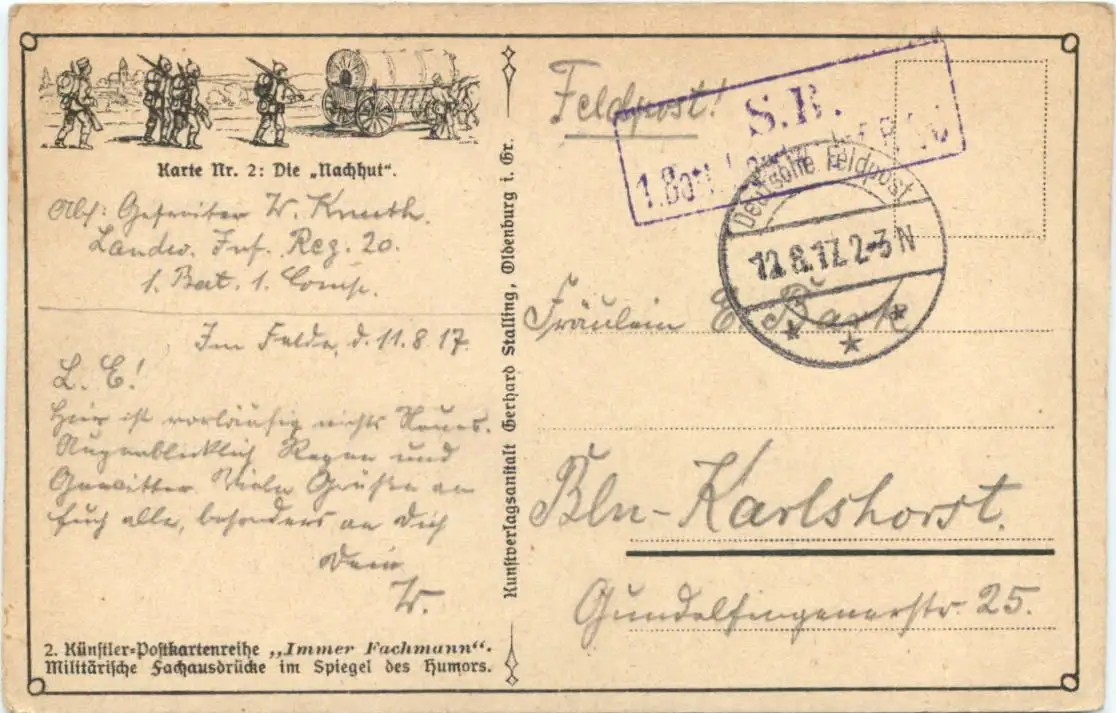 Karte Nr. 2: Die „Nachhut“.
Abs: Gefreiter W.
Landw. Inf. Reg. 20.
1. Bat. 1. Comp.
Im Felde, d. 11.8.17.
L. E!
Hier ist vorläufig nichts Neues.
Augenblicklich Regen und
Gewitter. Viele Grüße an
Euch alle, besonders an Dich
Dein
W.
2. Künstler=Postkartenreihe „Immer Fachmann“.
Militärische Fachausdrücke im Spiegel des Humors.
Kunstverlagsanstalt Gerhard Stalling, Oldenburg i. Gr.
Feldpost!
S.B.
1. Batl.
Deutsche Feldpost
12.8.17. 2-3 N
Fräulein E. Bark
Bln-Karlshorst.
Gundelfingenerstr. 25.